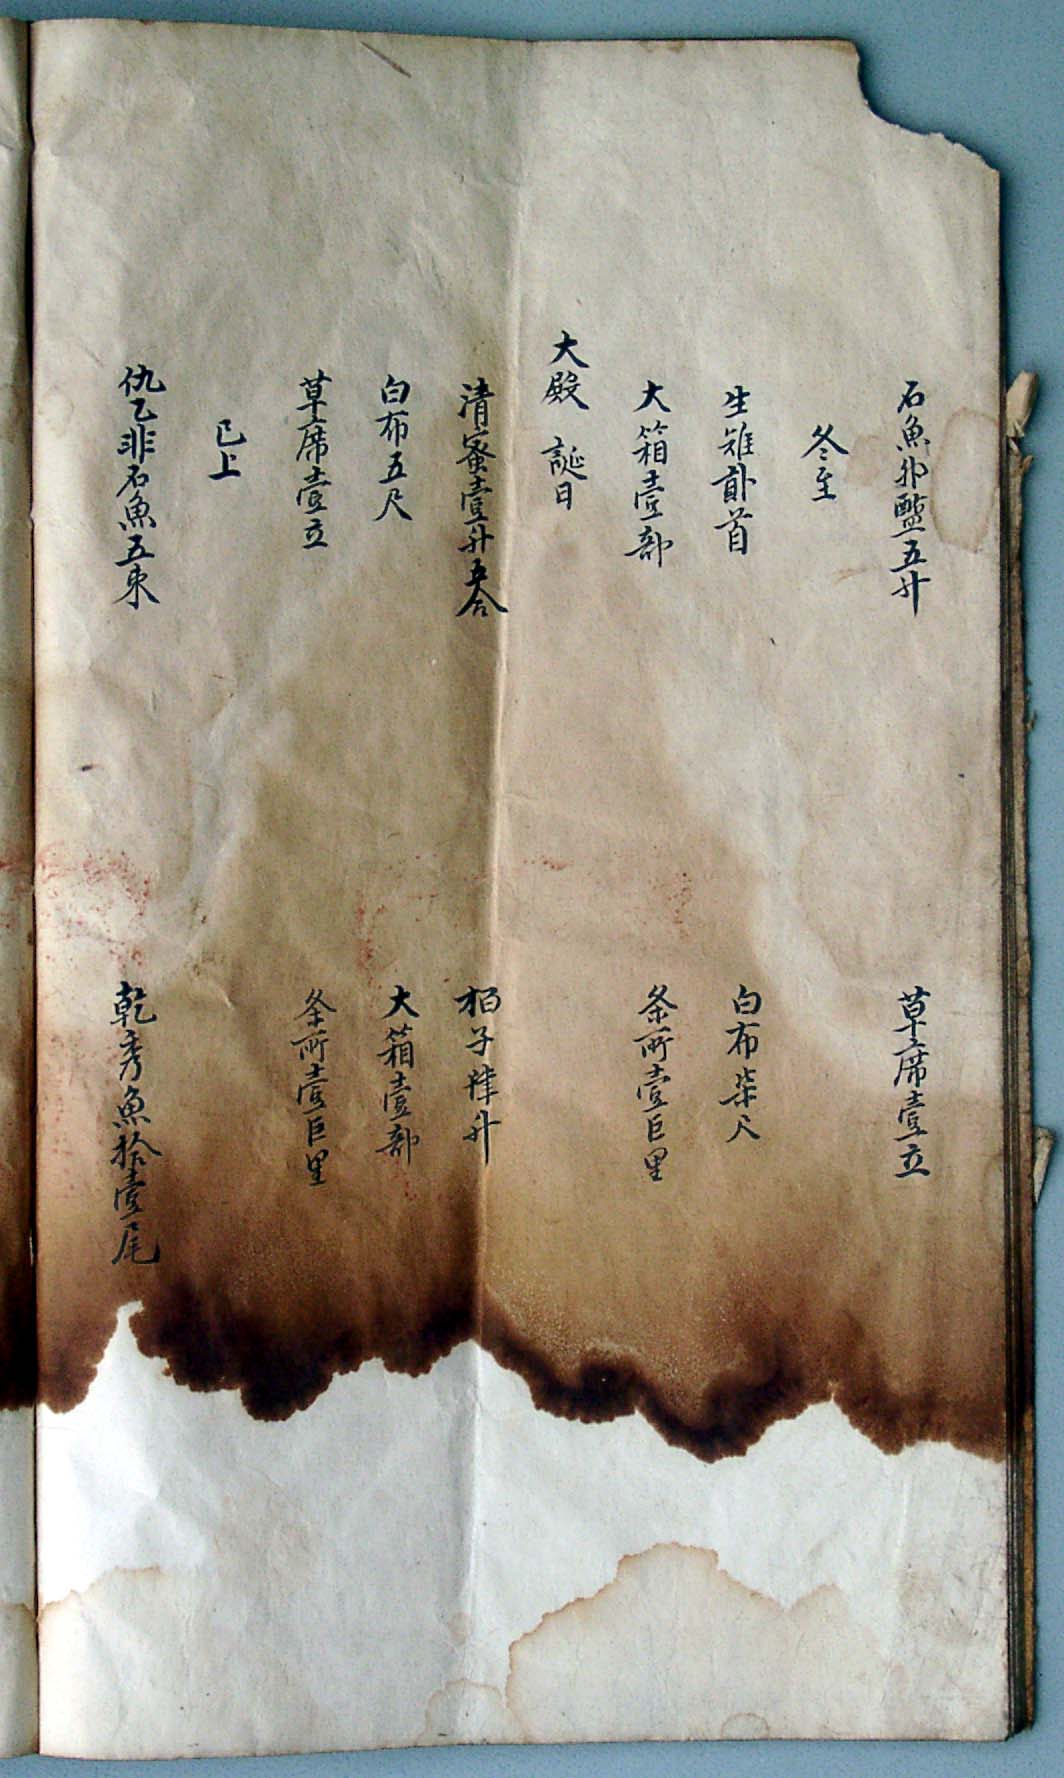 石魚卵醢五升 草席壹立
冬至
生雉貳首 白布柒尺
大箱壹部 条所壹巨里
大殿 誕日
清蜜壹升五合 栢子肆升
白布五尺 大箱壹部
草席壹立 条所壹巨里
已上
仇乙非石魚五束 乾秀魚拾壹尾